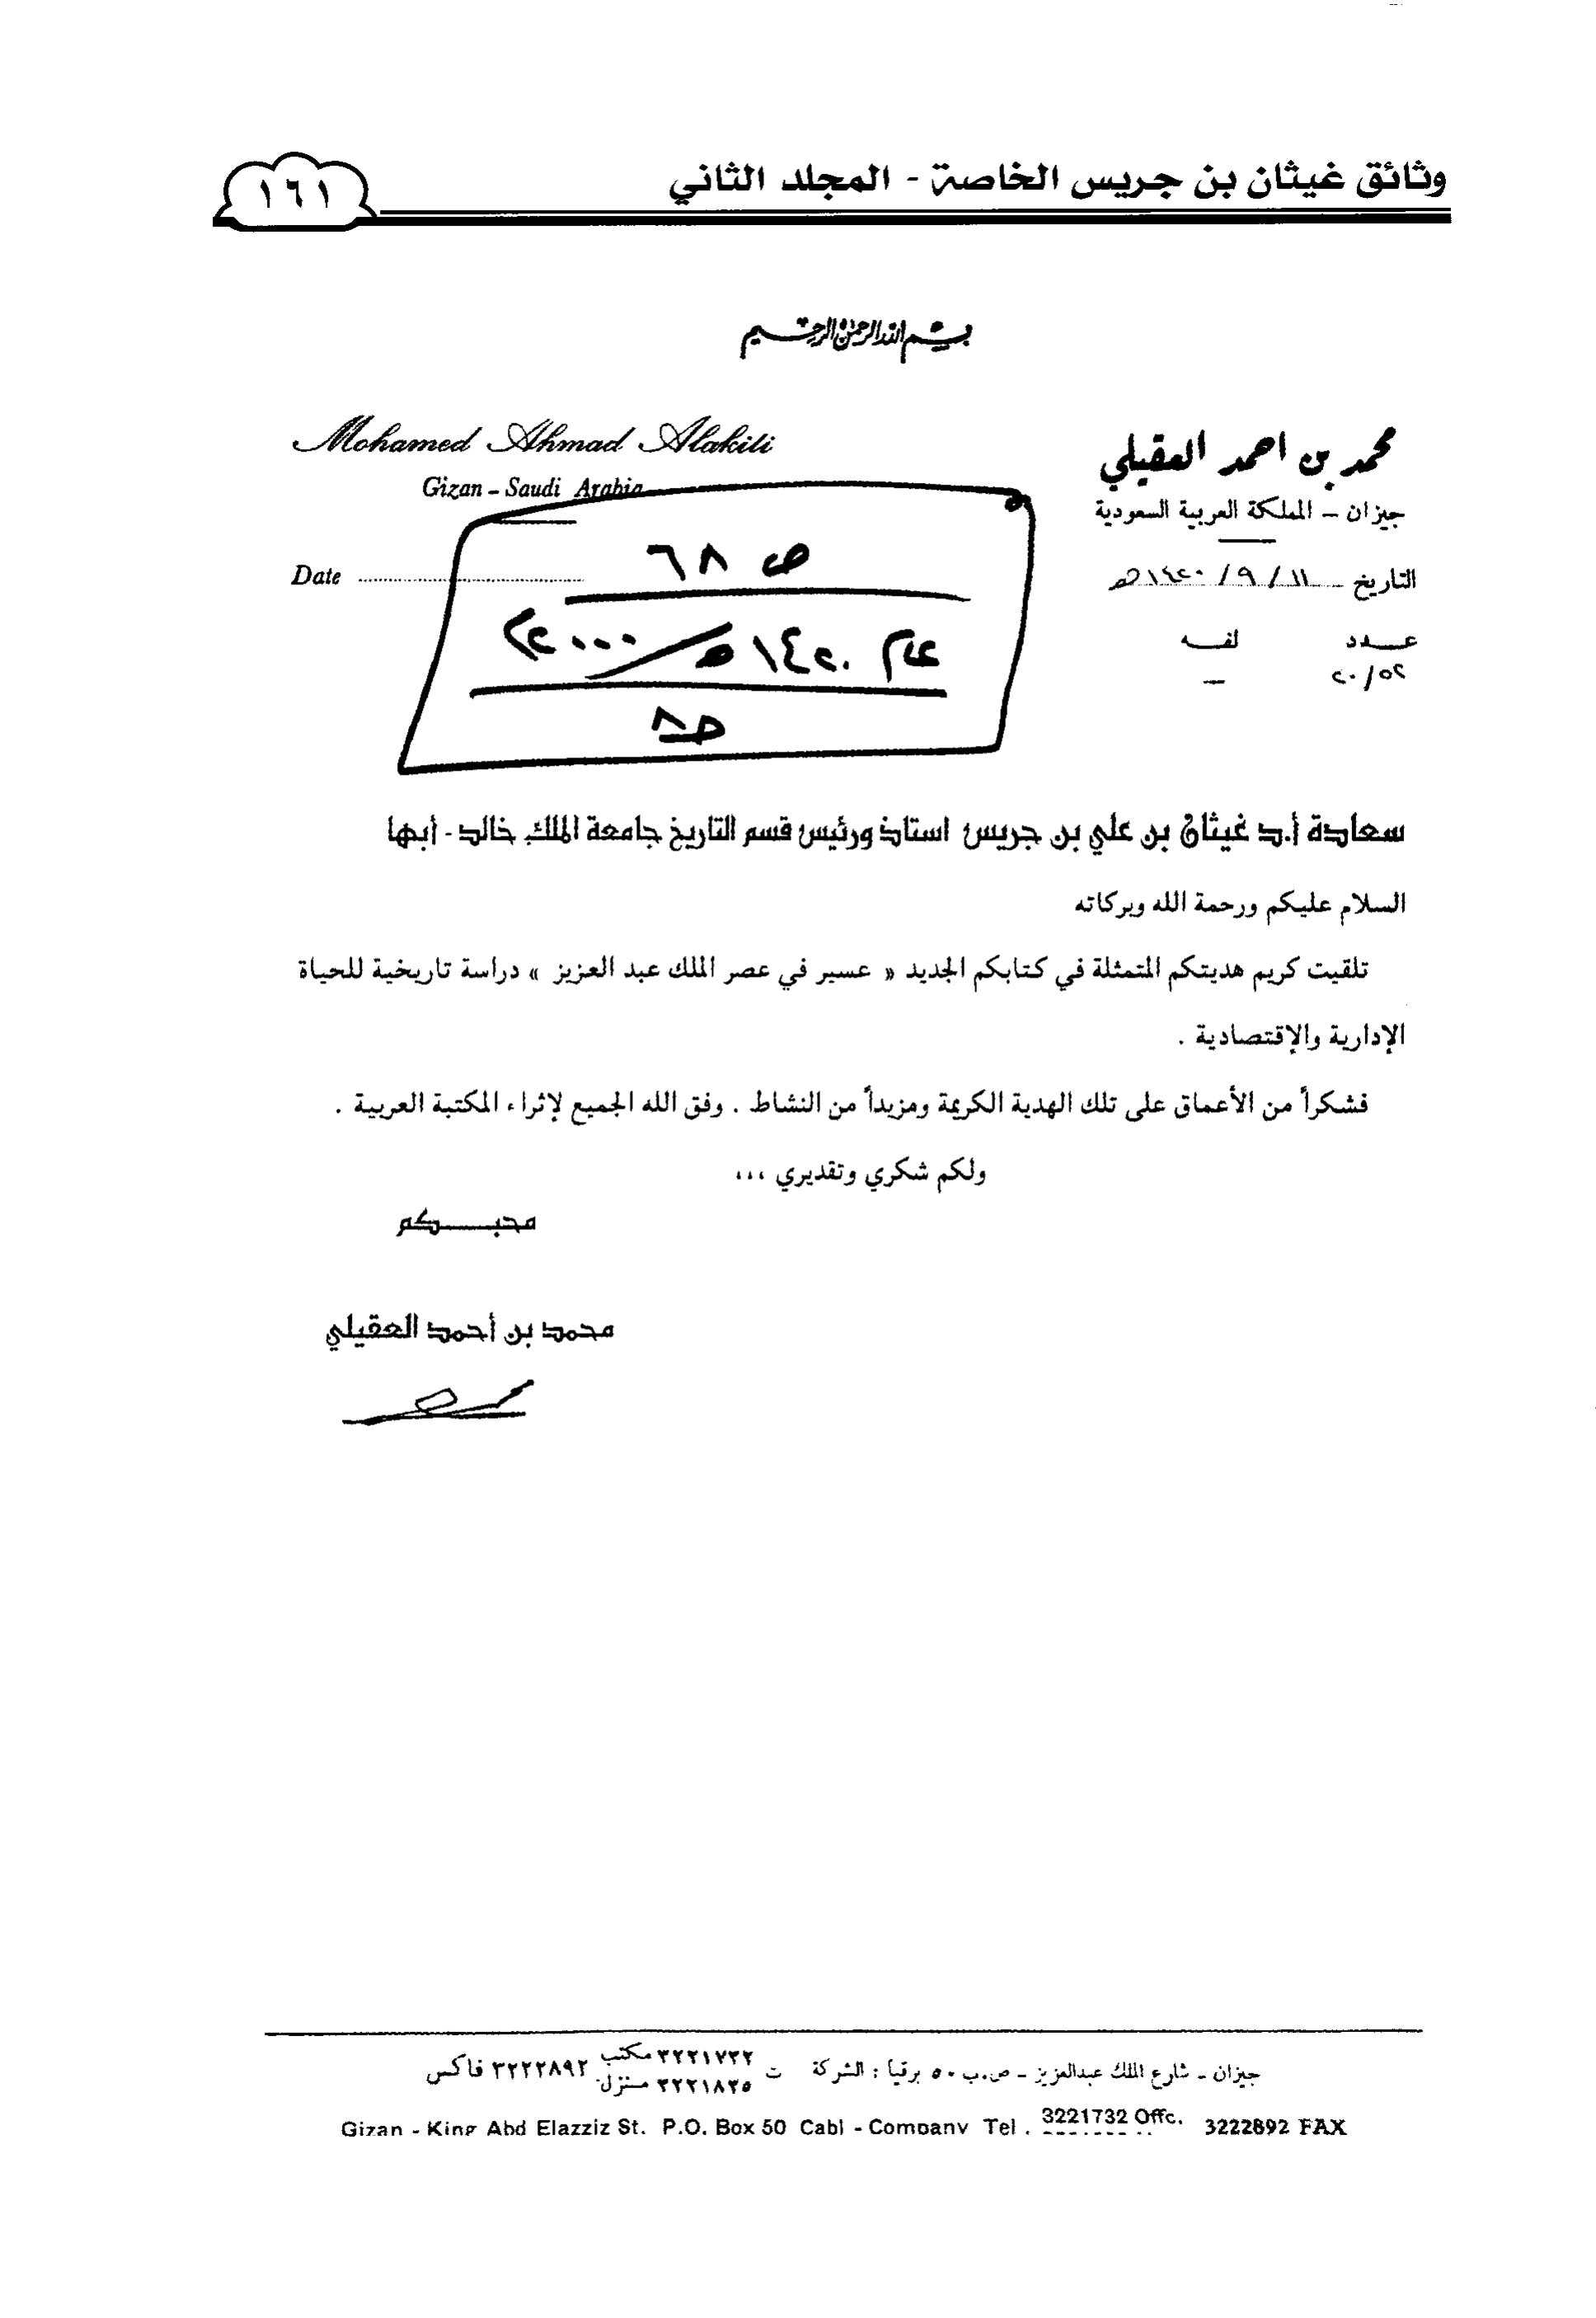 وثائق غيثان بن جريس الخاصة - المجلد الثاني
١٦١
بسم الله الرحمن الرحيم
محمد بن احمد العقيلي
جيزان – المملكة العربية السعودية
التاريخ ١١ / ٩ / ١٤٢٠هـ
عدد لفـه
٢٠/٥٢ –
Mohamed Ahmad Alakili
Gizan – Saudi Arabia
Date
ص ٦٨
عام ١٤٢٠هـ/٢٠٠٠م
سعادة أ.د غيثان بن علي بن جريس استاذ ورئيس قسم التاريخ جامعة الملك خالد - أبها
السلام عليكم ورحمة الله وبركاته
تلقيت كريم هديتكم المتمثلة في كتابكم الجديد « عسير في عصر الملك عبد العزيز » دراسة تاريخية للحياة
الإدارية والإقتصادية .
فشكراً من الأعماق على تلك الهدية الكريمة ومزيداً من النشاط . وفق الله الجميع لإثراء المكتبة العربية .
ولكم شكري وتقديري ،،،
محبـــكم
محمد بن أحمد العقيلي
جيزان - شارع الملك عبدالعزيز - ص.ب ٥٠ برقيا : الشركة ت ٣٢٢١٧٣٢ مكتب ٣٢٢١٨٣٥ منزل ٣٢٢٢٨٩٢ فاكس
Gizan - King Abd Elazziz St. P.O. Box 50 Cabl - Company Tel . 3221732 Offc. 3222892 FAX